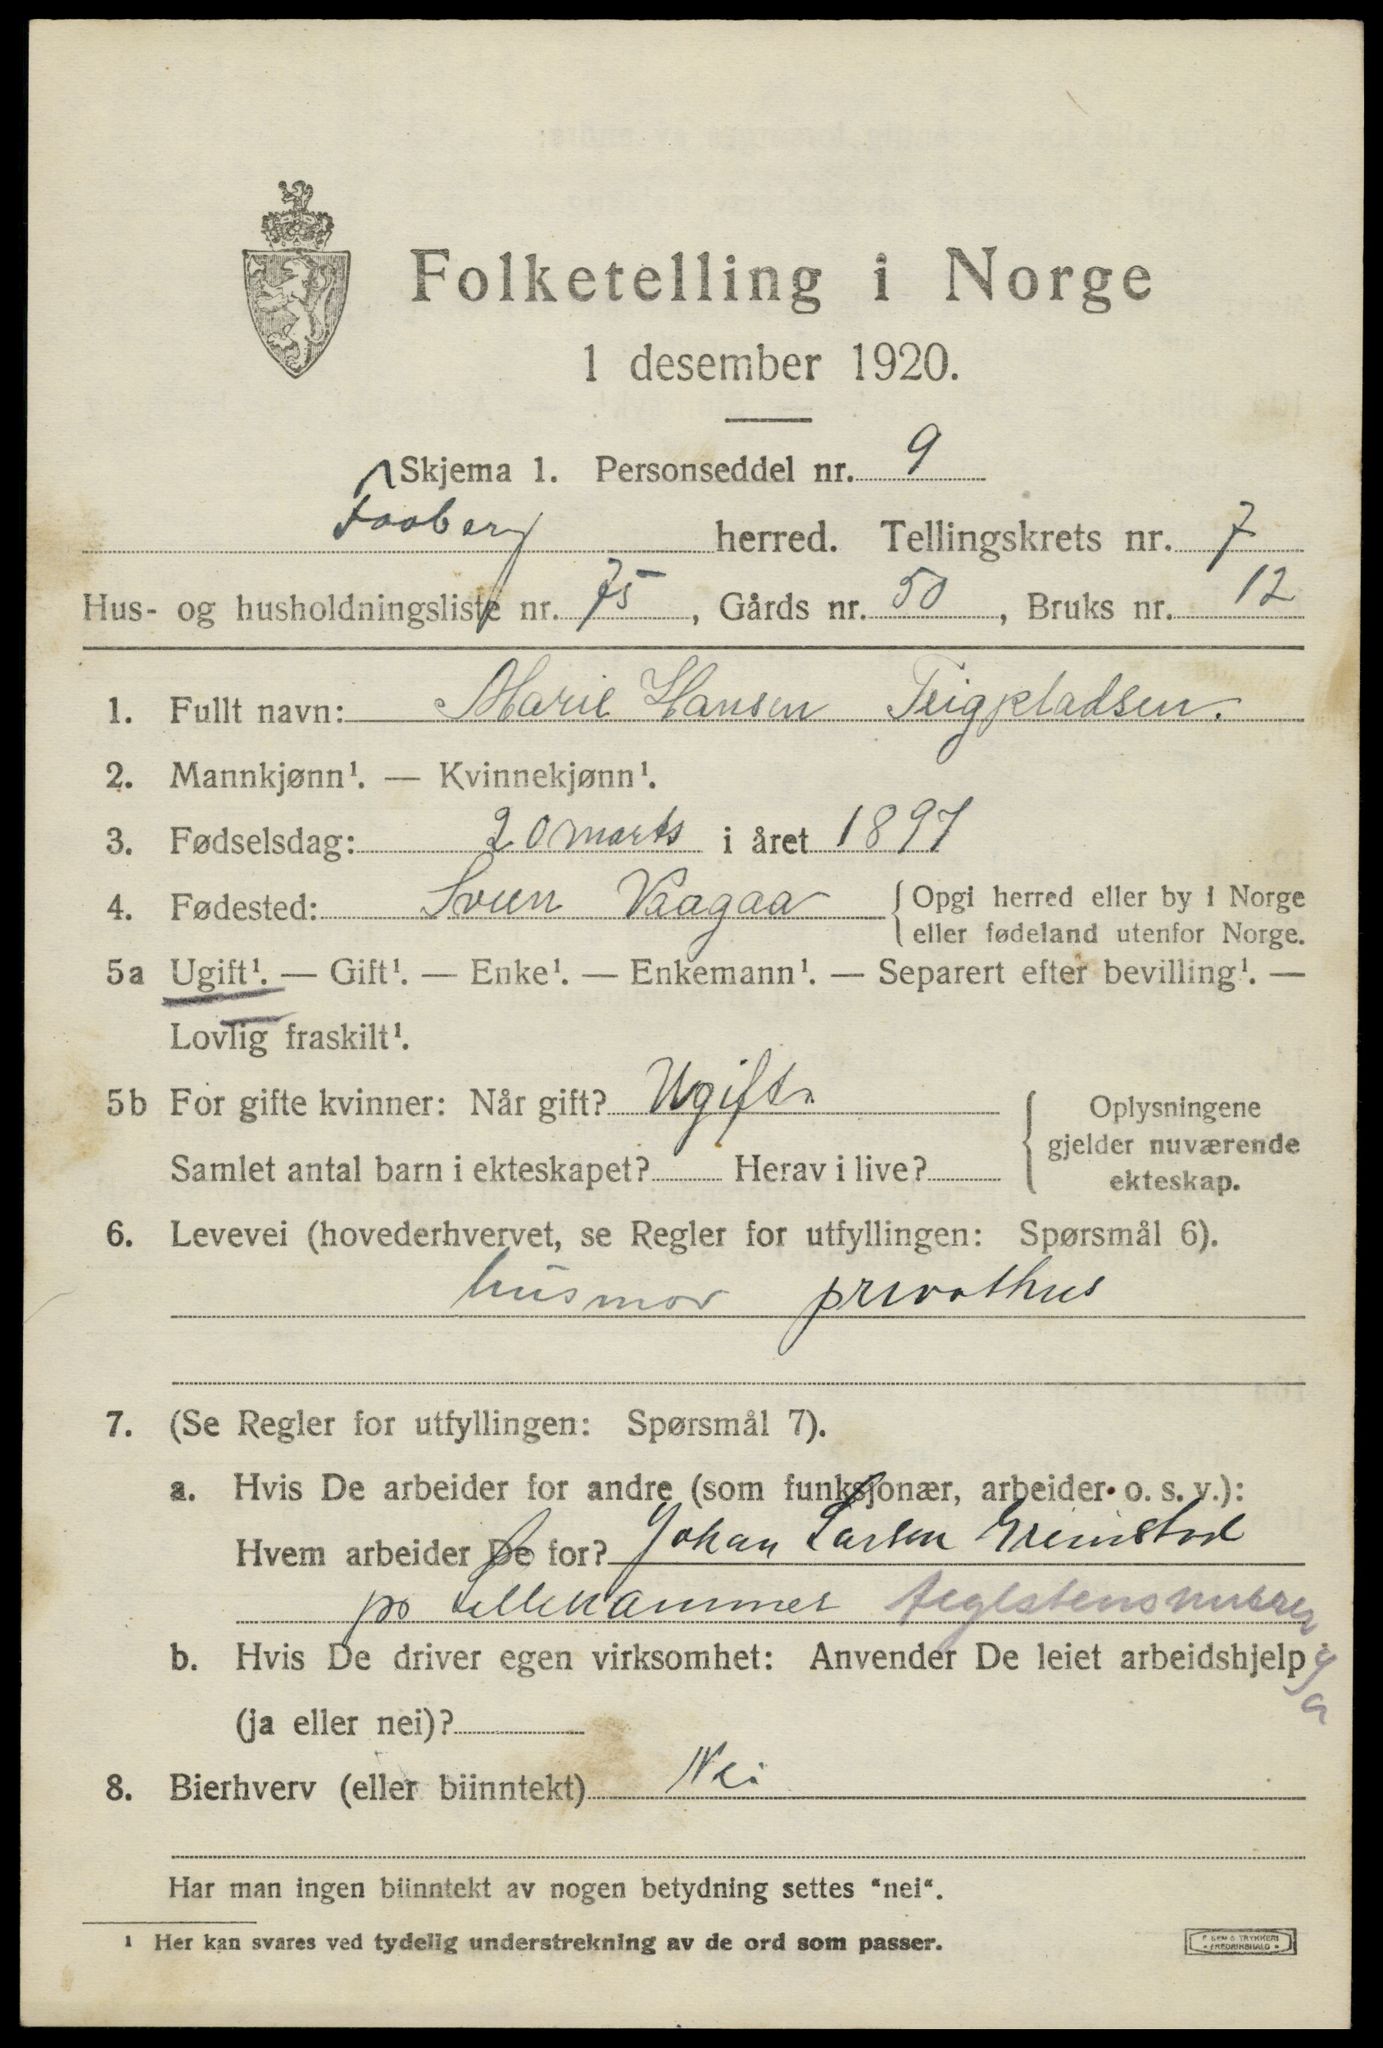 Folketelling i Norge
1 desember 1920.
Skjema 1. Personseddel nr. 9
Faaberg herred. Tellingskrets nr. 7
Hus- og husholdningsliste nr. 75, Gårds nr. 50, Bruks nr. 12
1. Fullt navn: Marie Hansen Teigpladsen.
2. Mannkjønn¹. — Kvinnekjønn¹.
3. Fødselsdag: 20 marts i året 1897
4. Fødested: Svein Vaagaa { Opgi herred eller by i Norge
eller fødeland utenfor Norge.
5a Ugift¹. — Gift¹. — Enke¹. — Enkemann¹. — Separert efter bevilling¹. —
Lovlig fraskilt¹.
5b For gifte kvinner: Når gift? Ugift { Oplysningene
gjelder nuværende
Samlet antal barn i ekteskapet? Herav i live?
ekteskap.
6. Levevei (hovederhvervet, se Regler for utfyllingen: Spørsmål 6).
husmor privathus
7. (Se Regler for utfyllingen: Spørsmål 7).
a. Hvis De arbeider for andre (som funksjonær, arbeider o. s. v.):
Hvem arbeider De for? Johan Larsen Grimstad
po Lillehammer teglstensmurer
b. Hvis De driver egen virksomhet: Anvender De leiet arbeidshjelp
(ja eller nei)?
8. Bierhverv (eller biinntekt) Nei
Har man ingen biinntekt av nogen betydning settes "nei".
¹ Her kan svares ved tydelig understrekning av de ord som passer.